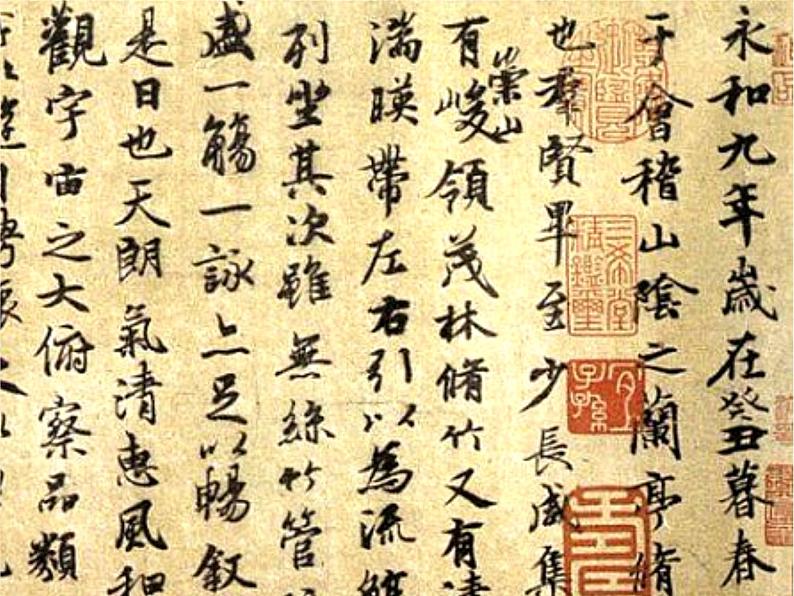 永和九年歲在癸丑暮春
于會稽山陰之蘭亭脩
也羣賢畢至少長咸集
有崇山峻領茂林脩竹又有清
湍暎帶左右引以為流觴
列坐其次雖無絲竹管
盛一觴一詠亦足以暢敘
是日也天朗氣清惠風和
觀宇宙之大俯察品類
三希堂
精鑑璽
宜
子孫